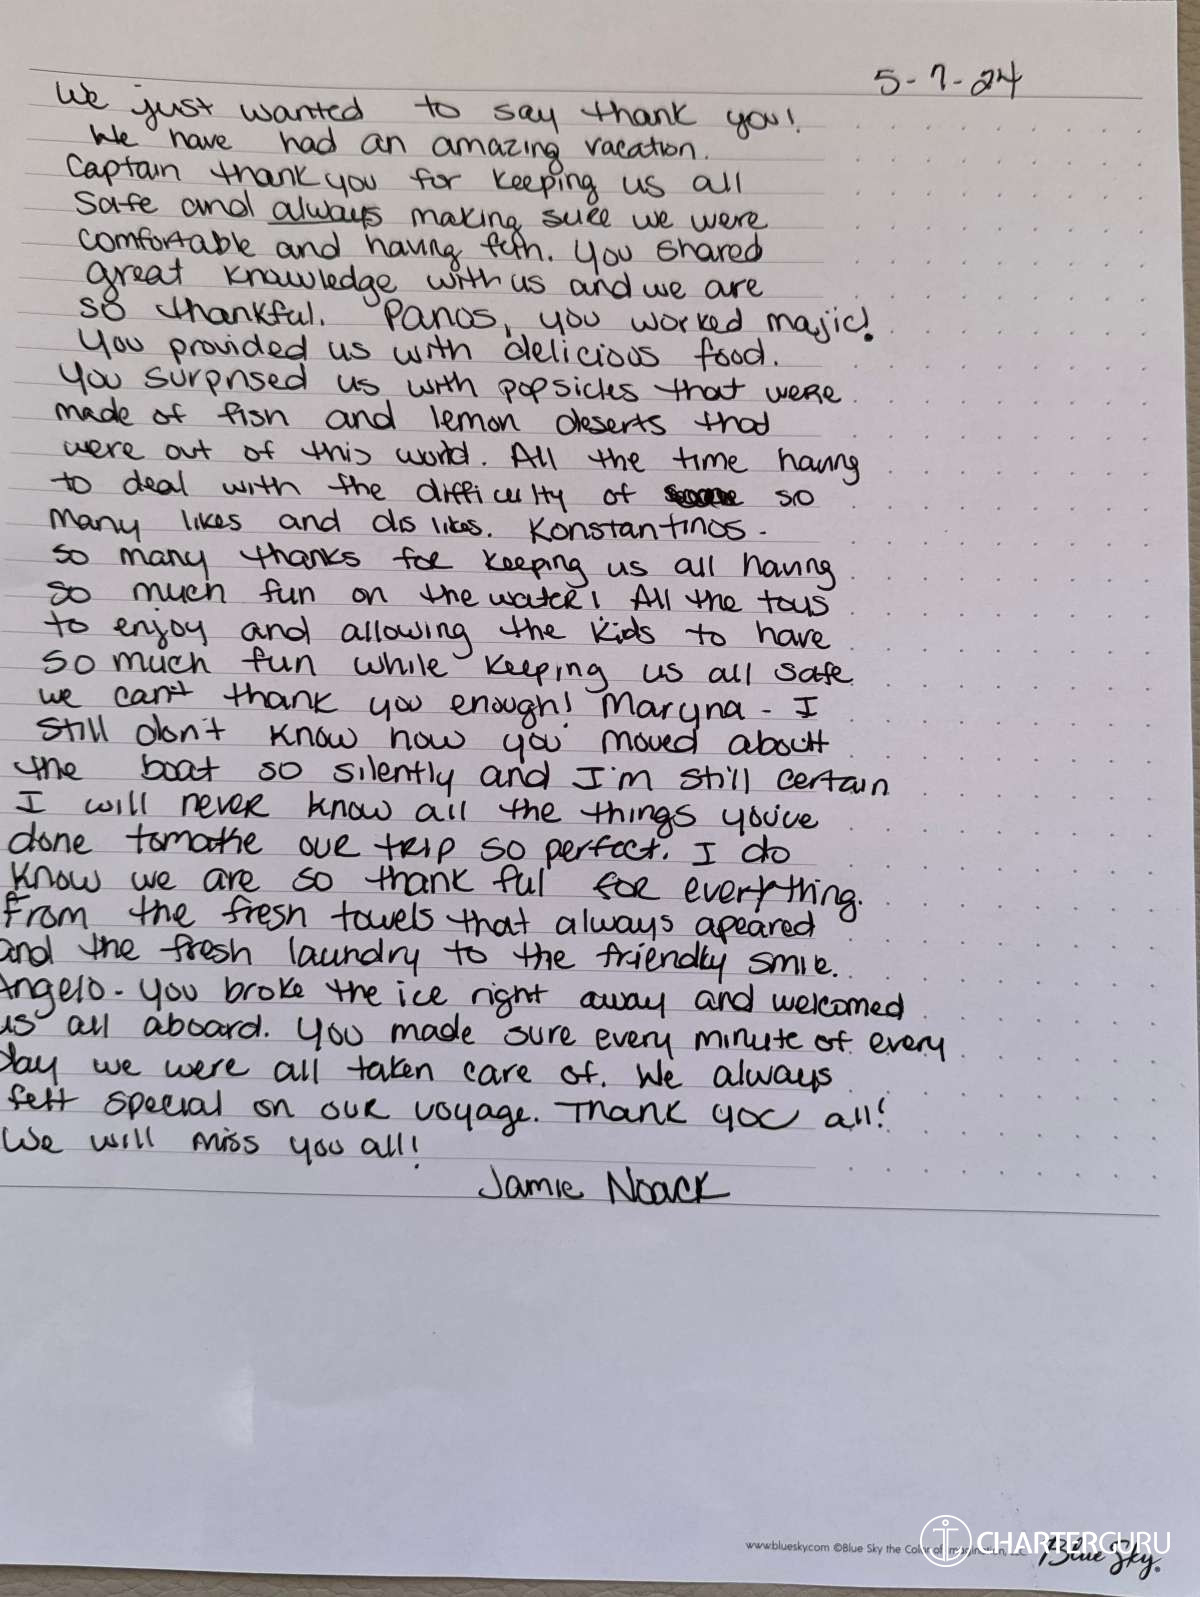 5-7-24
We just wanted to say thank you!
We have had an amazing vacation.
Captain thank you for keeping us all
safe and always making sure we were
comfortable and having fun. You shared
great knowledge with us and we are
so thankful. Panos, you worked majic!
You provided us with delicious food.
You surprised us with popsicles that were
made of fish and lemon deserts that
were out of this world. All the time having
to deal with the difficulty of so
many likes and dislikes. Konstantinos -
so many thanks for keeping us all having
so much fun on the water! All the toys
to enjoy and allowing the kids to have
so much fun while keeping us all safe
we can't thank you enough! Maryna - I
still don't know how you moved about
the boat so silently and I'm still certain
I will never know all the things you've
done to make our trip so perfect. I do
know we are so thankful for everything.
From the fresh towels that always apeared
and the fresh laundry to the friendly smile.
Angelo - you broke the ice right away and welcomed
us all aboard. You made sure every minute of every
day we were all taken care of. We always
felt special on our voyage. Thank you all!
We will miss you all!
Jamie Noack
www.bluesky.com ©Blue Sky the Color of Imagination, LLC
Blue Sky
CHARTERGURU